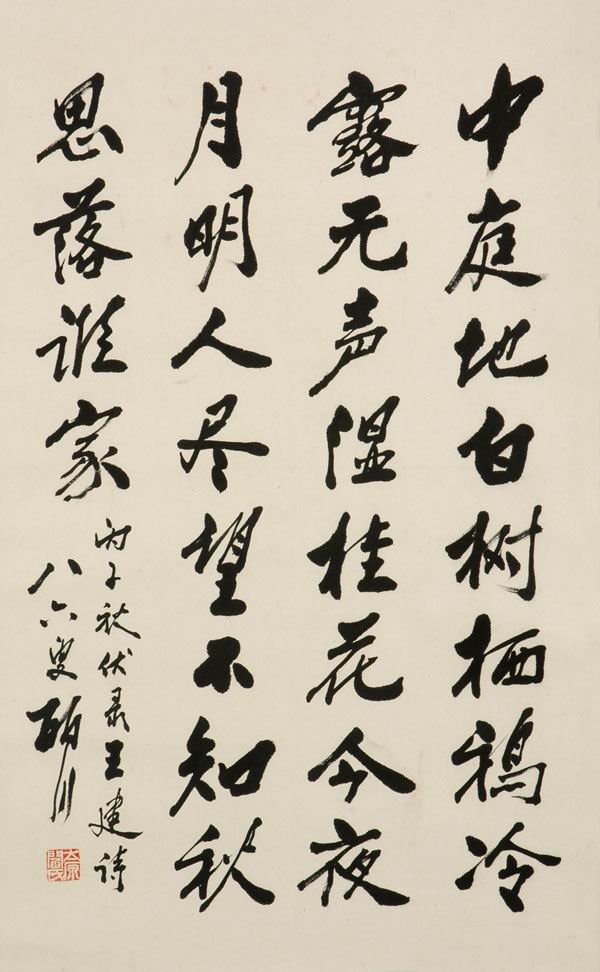 中庭地白树栖鴉冷
露无声湿桂花今夜
月明人尽望不知秋
思落谁家
丙子秋伏录王建诗
八六叟